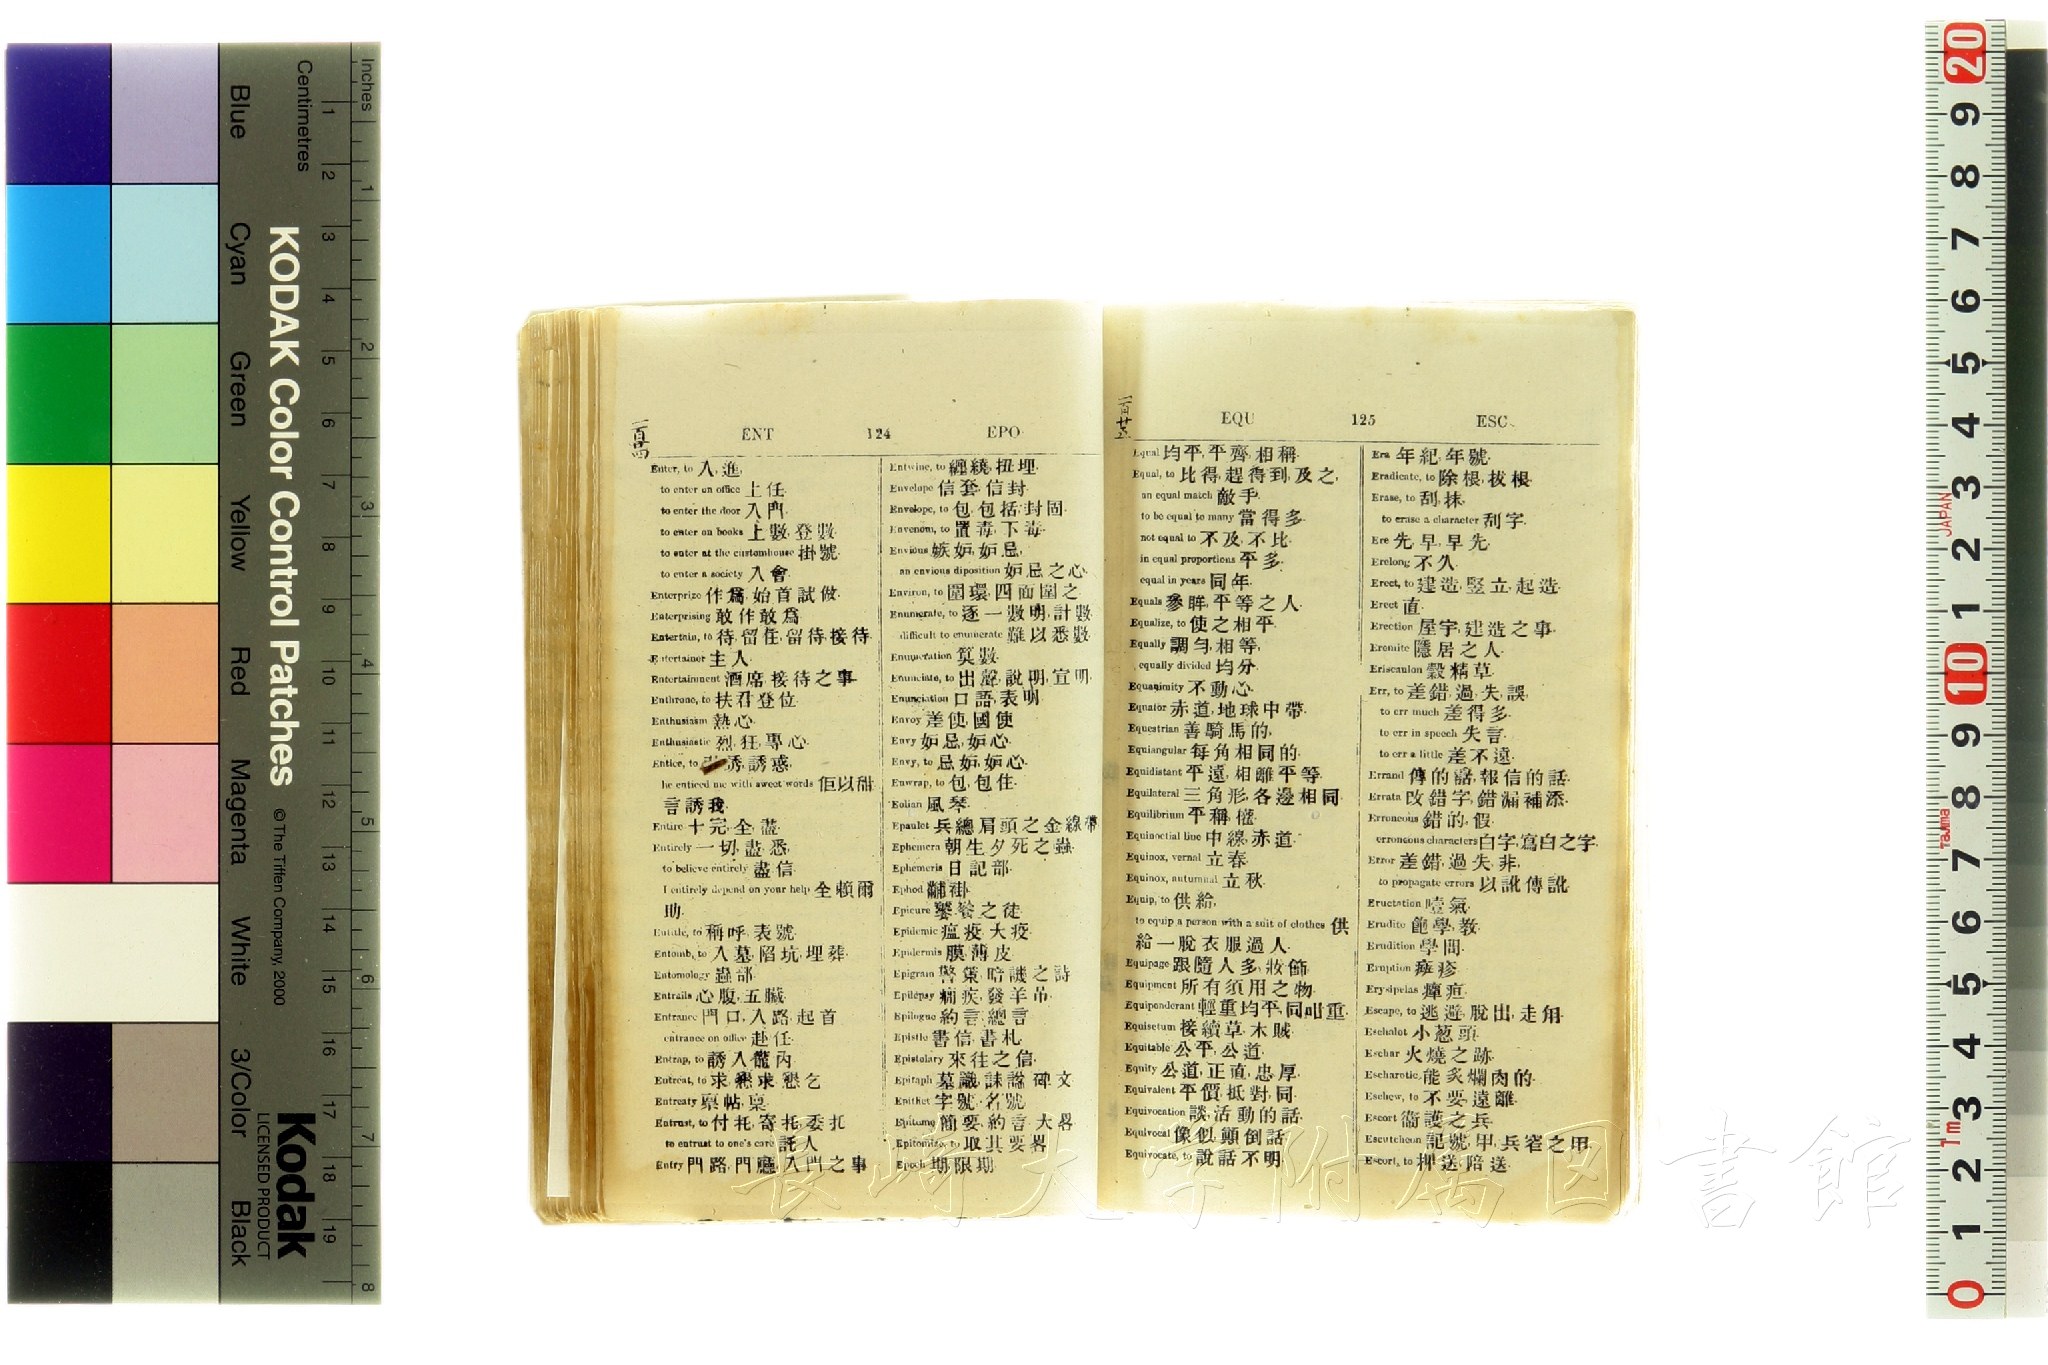 Inches
Centimetres
Blue
Cyan
Green
Yellow
Red
Magenta
White
3/Color
Black
KODAK Color Control Patches
© The Tiffen Company, 2000
Kodak
LICENSED PRODUCT
ENT 124 EPO
Enter, to 入, 進,
to enter an office 上任
to enter the door 入門
to enter on books 上數, 登數
to enter at the customhouse 掛號
to enter a society 入會
Enterprize 作爲, 始首試做
Enterprising 敢作敢爲
Entertain, to 待, 留住, 留待, 接待
Entertainer 主人
Entertainment 酒席, 接待之事
Enthrone, to 扶君登位
Enthusiasm 熱心
Enthusiastic 烈, 狂, 專心
Entice, to 誘, 誘惑
he enticed me with sweet words 佢以甜
言誘我
Entire 十完, 全, 盡
Entirely 一切, 盡, 悉
to believe entirely 盡信
I entirely depend on your help 全賴爾
助
Entitle, to 稱呼, 表號
Entomb, to 入墓, 陷坑, 埋葬
Entomology 蟲部
Entrails 心腹, 五臟
Entrance 門口, 入路, 起首
entrance on office 赴任
Entrap, to 誘入籠內
Entreat, to 求, 懇求, 懇乞
Entreaty 稟帖, 稟
Entrust, to 付托, 寄托, 委托
to entrust to one's care 託人
Entry 門路, 門廳, 入門之事
Entwine, to 纏繞, 扭埋
Envelope 信套, 信封
Envelope, to 包, 包括, 封固
Envenom, to 置毒, 下毒
Envious 嫉妒, 妒忌
an envious diposition 妒忌之心
Environ, to 圍環, 四面圍之
Enumerate, to 逐一數明, 計數
difficult to enumerate 難以悉數
Enumeration 算數
Enunciate, to 出聲, 說明, 宣明
Enunciation 口語, 表明
Envoy 差使, 國使
Envy 妒忌, 妒心
Envy, to 忌妒, 妒心
Enwrap, to 包, 包住
Eolian 風琴
Epaulet 兵總肩頭之金線帶
Ephemera 朝生夕死之蟲
Ephemeris 日記部
Ephod 黼褂
Epicure 饕餮之徒
Epidemic 瘟疫, 大疫
Epidermis 膜, 薄皮
Epigram 警策, 暗譏之詩
Epilepsy 癇疾, 發羊吊
Epilogue 約言, 總言
Epistle 書信, 書札
Epistolary 來往之信
Epitaph 墓識, 誄諡, 碑文
Epithet 字號, 名號
Epitome 簡要, 約言, 大畧
Epitomize, to 取其要畧
Epoch 期, 限期
EQU 125 ESC
Equal 均平, 平齊, 相稱
Equal, to 比得, 趕得到, 及之,
an equal match 敵手
to be equal to many 當得多
not equal to 不及, 不比
in equal proportions 平多
equal in years 同年
Equals 參眸, 平等之人
Equalize, to 使之相平
Equally 調勻, 相等,
equally divided 均分
Equanimity 不動心
Equator 赤道, 地球中帶
Equestrian 善騎馬的,
Equiangular 每角相同的
Equidistant 平遠, 相離平等
Equilateral 三角形, 各邊相同
Equilibrium 平稱
Equinoctial line 中線, 赤道
Equinox, vernal 立春
Equinox, autumnal 立秋
Equip, to 供給,
to equip a person with a suit of clothes 供
給一脫衣服過人
Equipage 跟隨人多, 妝飾
Equipment 所有須用之物
Equiponderant 輕重均平, 同咁重
Equisetum 接續草, 木賊
Equitable 公平, 公道
Equity 公道, 正直, 忠厚
Equivalent 平價, 抵對, 同
Equivocation 談, 活動的話
Equivocal 像似, 顛倒話
Equivocate, to 說話不明
Era 年紀, 年號
Eradicate, to 除根, 拔根
Erase, to 刮, 抹
to erase a character 刮字
Ere 先, 早, 早先
Erelong 不久
Erect, to 建造, 竪立, 起造
Erect 直
Erection 屋宇, 建造之事
Eremite 隱居之人
Eriocaulon 穀精草
Err, to 差錯, 過, 失, 誤,
to err much 差得多
to err in speech 失言
to err a little 差不遠
Errand 傳的話, 報信的話
Errata 改錯字, 錯漏補添
Erroneous 錯的, 假
erroneous characters 白字, 寫白之字
Error 差錯, 過失, 非,
to propagate errors 以訛傳訛
Eructation 噎氣
Erudite 飽學, 教
Erudition 學問
Eruption 瘼疹
Erysipelas 癉疸
Escape, to 逃避, 脫出, 走甩
Eschalot 小葱頭
Eschar 火燒之跡
Escharotic, 能炙爛肉的
Eschew, to 不要, 遠離
Escort 衞護之兵
Escutcheon 記號甲, 兵窰之甲
Escort, to 押送, 陪送
長崎大学附属図書館
JAPAN
Tajima
1m